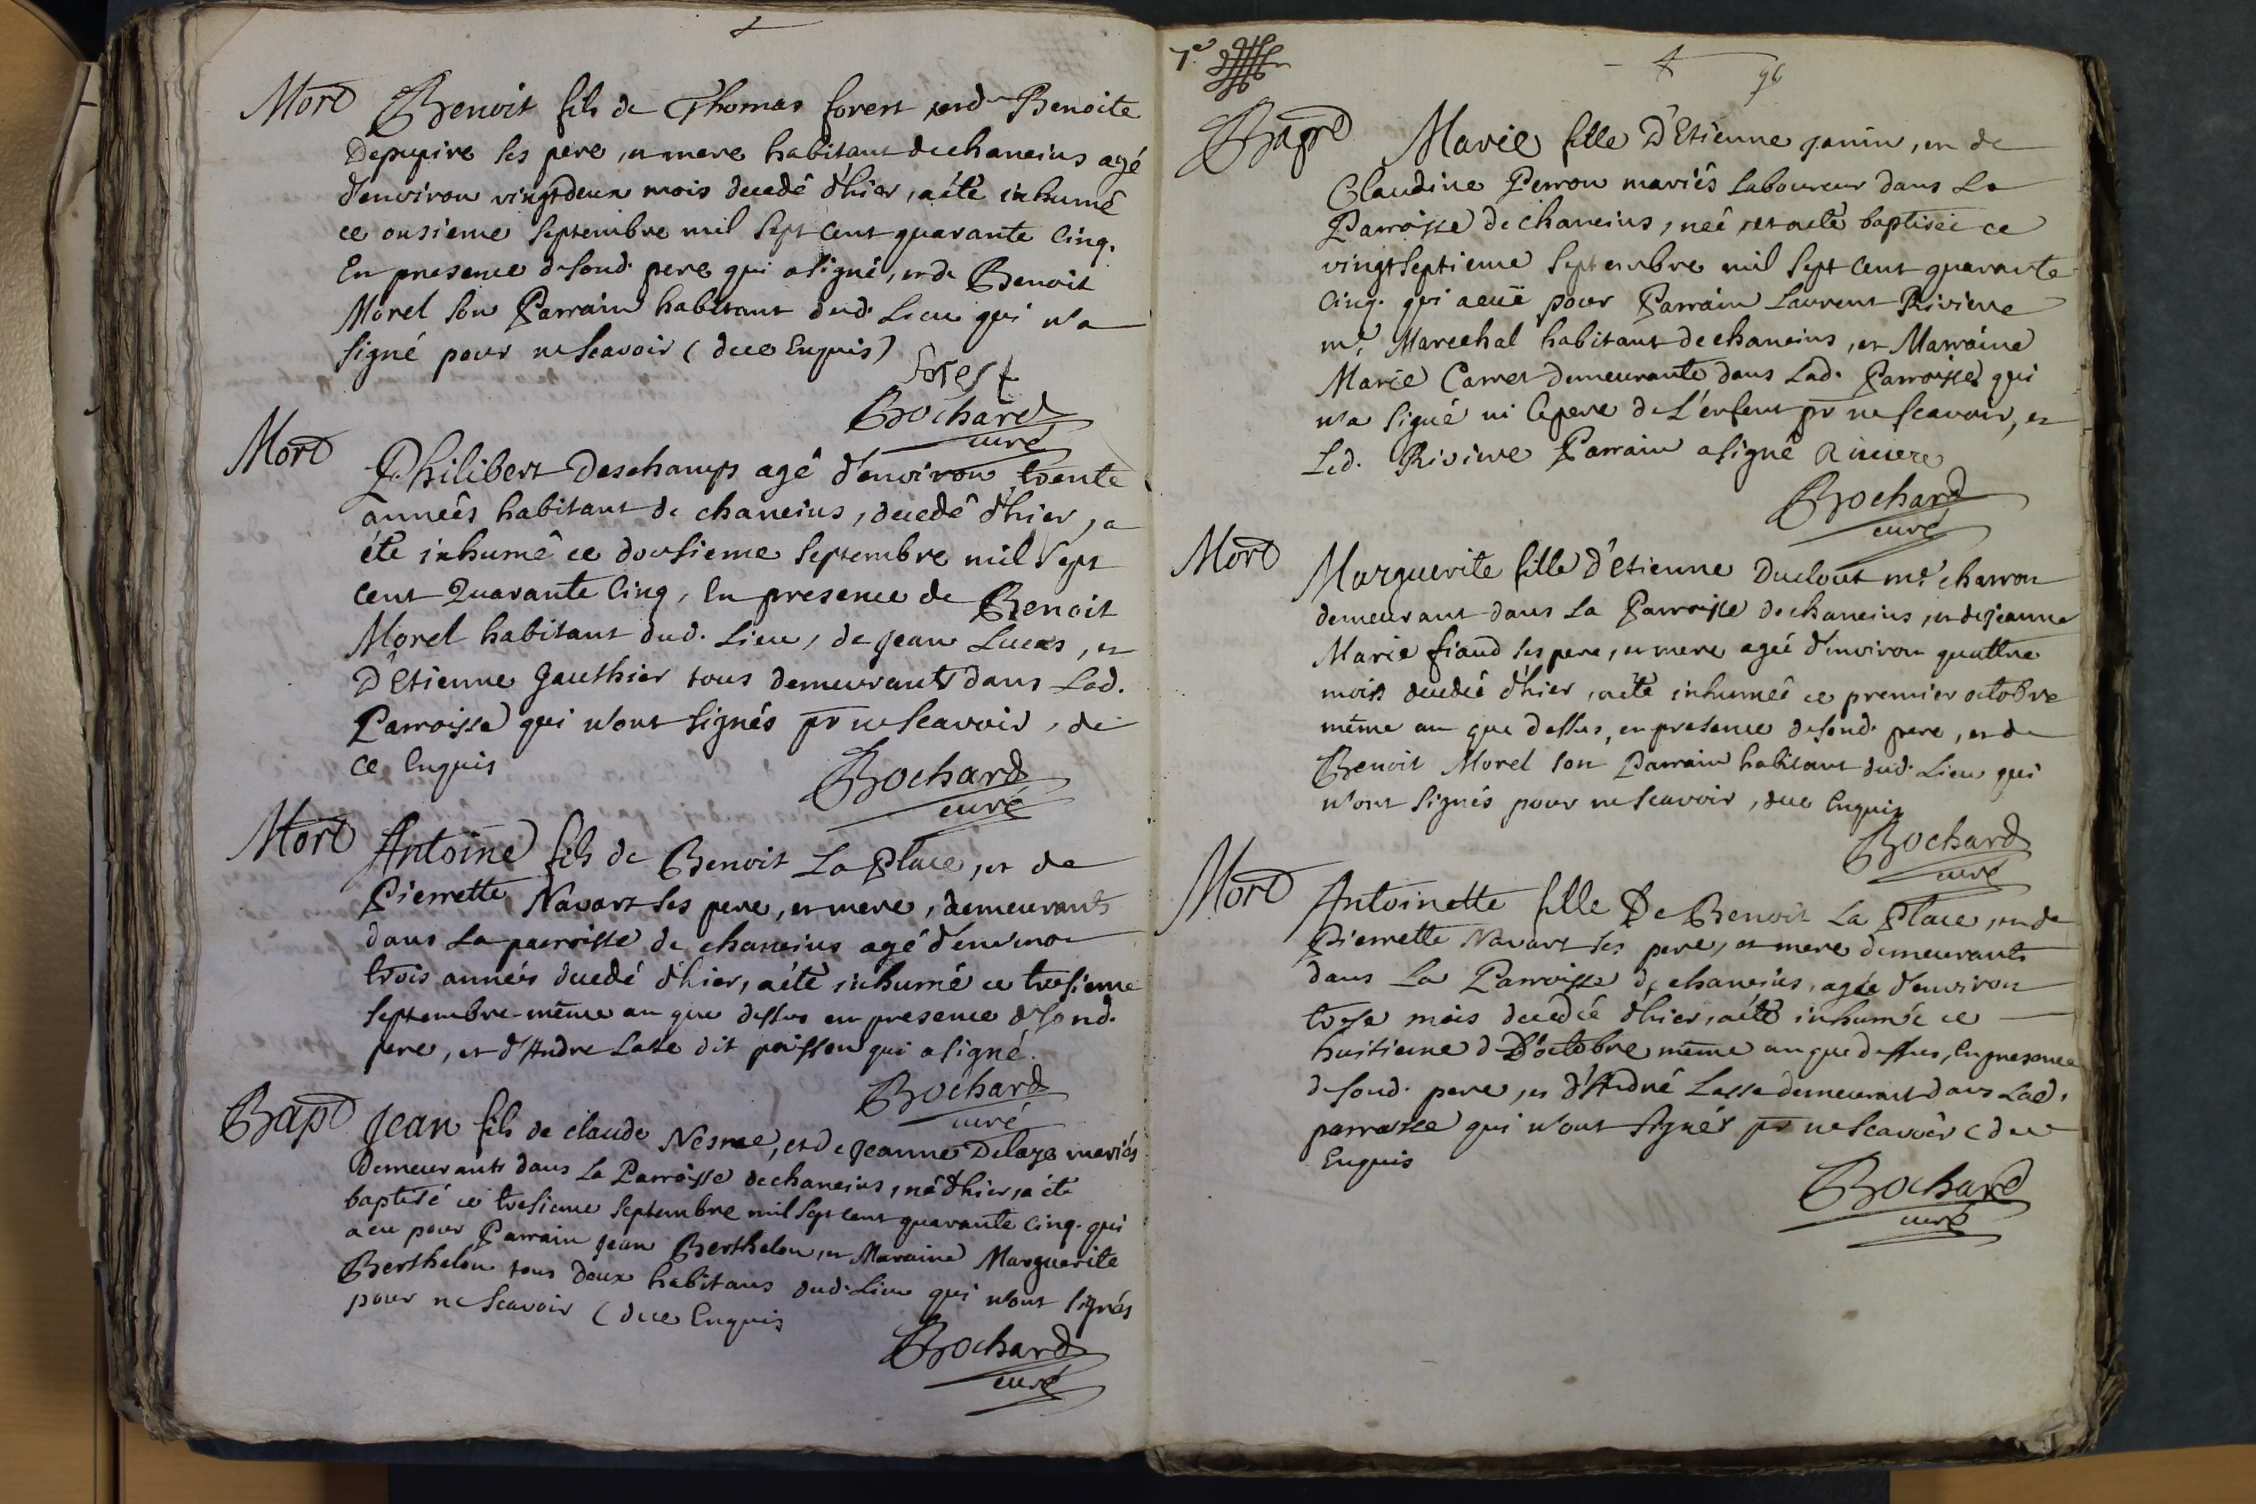 Mort Benoit fils de Thomas forest et de Benoite
Depupire ses pere, et mere habitant de chaneins agé
d'environ vingt deux mois decedé d'hier, a été inhumé
ce onsieme Septembre mil Sept Cent quarante Cinq.
En presence de sond. pere qui a signé, et de Benoit
Morel son Parrain habitant dud. Lieu qui n'a
signé pour ne scavoir (de ce Enquis)
forest
Bochard
curé
Mort Philibert Deschamps agé d'environ trente
anneés habitant de chaneins, decedé d'hier, a
été inhumé ce dousieme Septembre mil Sept
Cent Quarante Cinq, En presence de Benoit
Morel habitant dud. Lieu, de jean Lucas, et
D'Etienne Gauthier tous demeurants dans Lad.
Parroisse qui n'ont signés pr ne scavoir, de
ce Enquis
Bochard
curé
Mort Antoine fils de Benoit La Place, et de
Pierrette Navart ses pere, et mere, demeurants
dans La parroisse de chaneins agé d'environ
trois anneés decedé d'hier, a été inhumé ce tresieme
Septembre même an que dessus en presence de sond.
pere, et d'Andre Lasse dit poisson qui a signé.
Bochard
curé
Bapt Jean fils de claude Nesme, et de Jeanne Delaye mariés
Demeurants dans La Parroisse de chaneins, né d'hier, a été
baptisé ce tresieme Septembre mil Sept cent quarante Cinq. qui
a eu pour Parrain Jean Berthelon, et Maraine Marguerite
Berthelon tous Deux habitans dud. Lieu qui n'ont signés
pour ne Scavoir (de ce Enquis
Bochard
curé
7e
96
Bapt Marie fille D'Etienne janin, et de
Claudine Perron mariés Laboureur dans La
Parroisse de chaneins, neé, et a eté baptiseé ce
vingt Septieme Septembre mil Sept Cent quarante
Cinq. qui a eüe pour Parrain Laurent Riviere
me. Marechal habitant de chaneins, et Marraine
Marie Carret demeurante dans Lad. Parroisse qui
n'a signé ni le pere de L'enfent pr ne scavoir, et
Led. Riviere Parrain a signé Riviere
Bochard
curé
Mort Marguerite fille d'etienne Duclout me. charron
demeurant dans La Parroisse de chaneins, et de jeanne
Marie fiaud ses pere, et mere ageé d'environ quattre
mois decedeé d'hier, a été inhumeé ce premier octobre
même an que dessus, en presence de sond. pere, et de
Benoit Morel son Parrain habitant dud. Lieu qui
n'ont signés pour ne scavoir, de ce Enquis
Bochard
curé
Mort Antoinette fille De Benoit La Place, et de
Pierrette Navart ses pere, et mere demeurants
dans La Parroisse de chaneins, agée d'environ
trese mois decedée d'hier, a été inhumée ce
huitieme D'octobre même an que dessus, En presence
de sond. pere, et d'André Lasse demeurant dans Lad.
parroisse qui n'ont signés pr ne Scavoir (de ce
Enquis
Bochard
curé